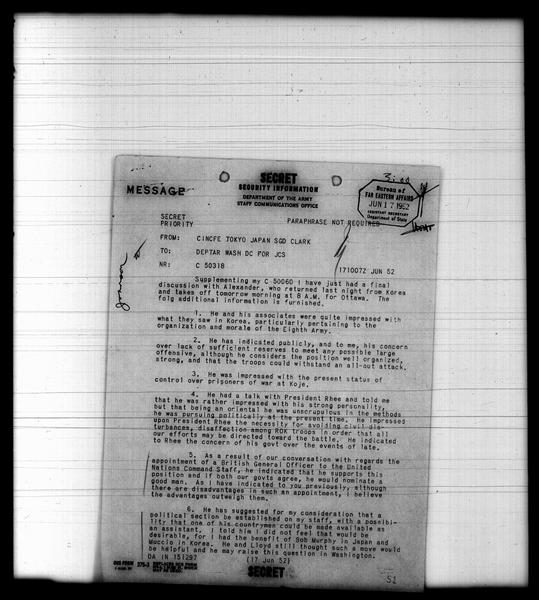 3:00
SECRET
SECURITY INFORMATION
MESSAGE
DEPARTMENT OF THE ARMY
STAFF COMMUNICATIONS OFFICE
Bureau of
FAR EASTERN AFFAIRS
JUN 17 1952
ASSISTANT SECRETARY
Department of State
SECRET
PRIORITY
PARAPHRASE NOT REQUIRED
FROM: CINCFE TOKYO JAPAN SGD CLARK
TO: DEPTAR WASH DC FOR JCS
NR: C 50318
171007Z JUN 52
Supplementing my C 50060 I have just had a final
discussion with Alexander, who returned last night from Korea
and takes off tomorrow morning at 8 A.M. for Ottawa. The
folg additional information is furnished.
1. He and his associates were quite impressed with
what they saw in Korea, particularly pertaining to the
organization and morale of the Eighth Army.
2. He has indicated publicly, and to me, his concern
over lack of sufficient reserves to meet any possible large
offensive, although he considers the position well organized,
strong, and that the troops could withstand an all-out attack.
3. He was impressed with the present status of
control over prisoners of war at Koje.
4. He had a talk with President Rhee and told me
that he was rather impressed with his strong personality,
but that being an oriental he was unscrupulous in the methods
he was pursuing politically at the present time. He impressed
upon President Rhee the necessity for avoiding civil dis-
turbances, disaffection among ROK troops in order that all
our efforts may be directed toward the battle. He indicated
to Rhee the concern of his govt over the events of late.
5. As a result of our conversation with regards the
appointment of a British General Officer to the United
Nations Command Staff, he indicated that he supports this
position and if both our govts agree, he would nominate a
good man. As I have indicated to you previously, although
there are disadvantages in such an appointment, I believe
the advantages outweigh them.
6. He has suggested for my consideration that a
political section be established on my staff, with a possibi-
lity that one of his countrymen could be made available as
an assistant. I told him I did not feel that would be
desirable, for I had the benefit of Bob Murphy in Japan and
Muccio in Korea. He and Lloyd still thought such a move would
be helpful and he may raise this question in Washington.
DA IN 151297
(17 Jun 52)
OCS FORM 375-3
SECRET
51